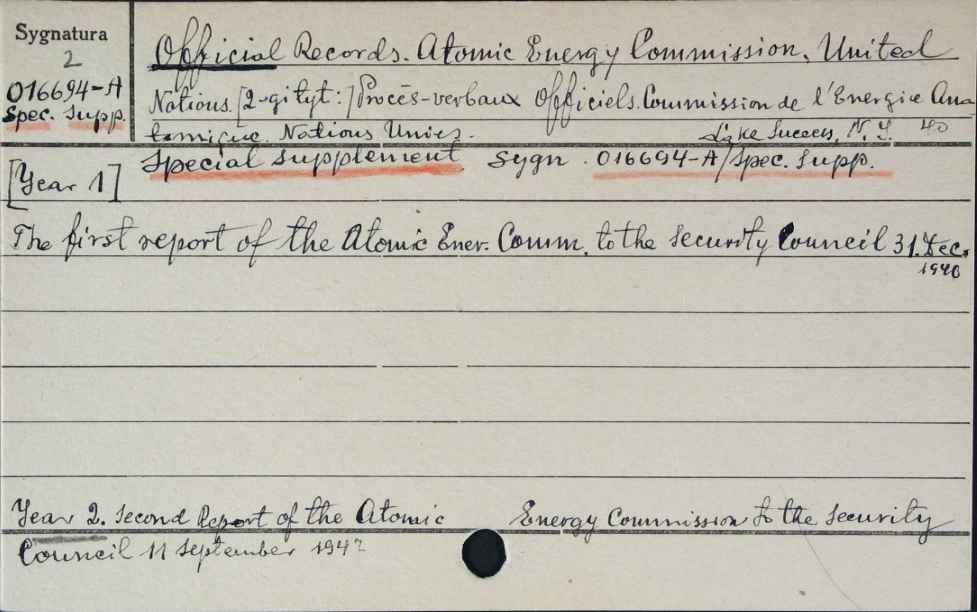 Sygnatura
2
016694-A
Spec. Supp.
Official Records. Atomic Energy Commission. United
Nations. [2-gi tyt:] Procès-verbaux Officiels. Commission de l'Energie Ana-
tomique. Nations Unies. Lake Success, N.Y. 40
[Year 1] Special supplement Sygn. 016694-A/Spec. Supp.
The first report of the Atomic Ener. Comm. to the Security Council 31. Dec.
1946
Year 2. Second Report of the Atomic Energy Commission to the Security
Council 11 September 1947